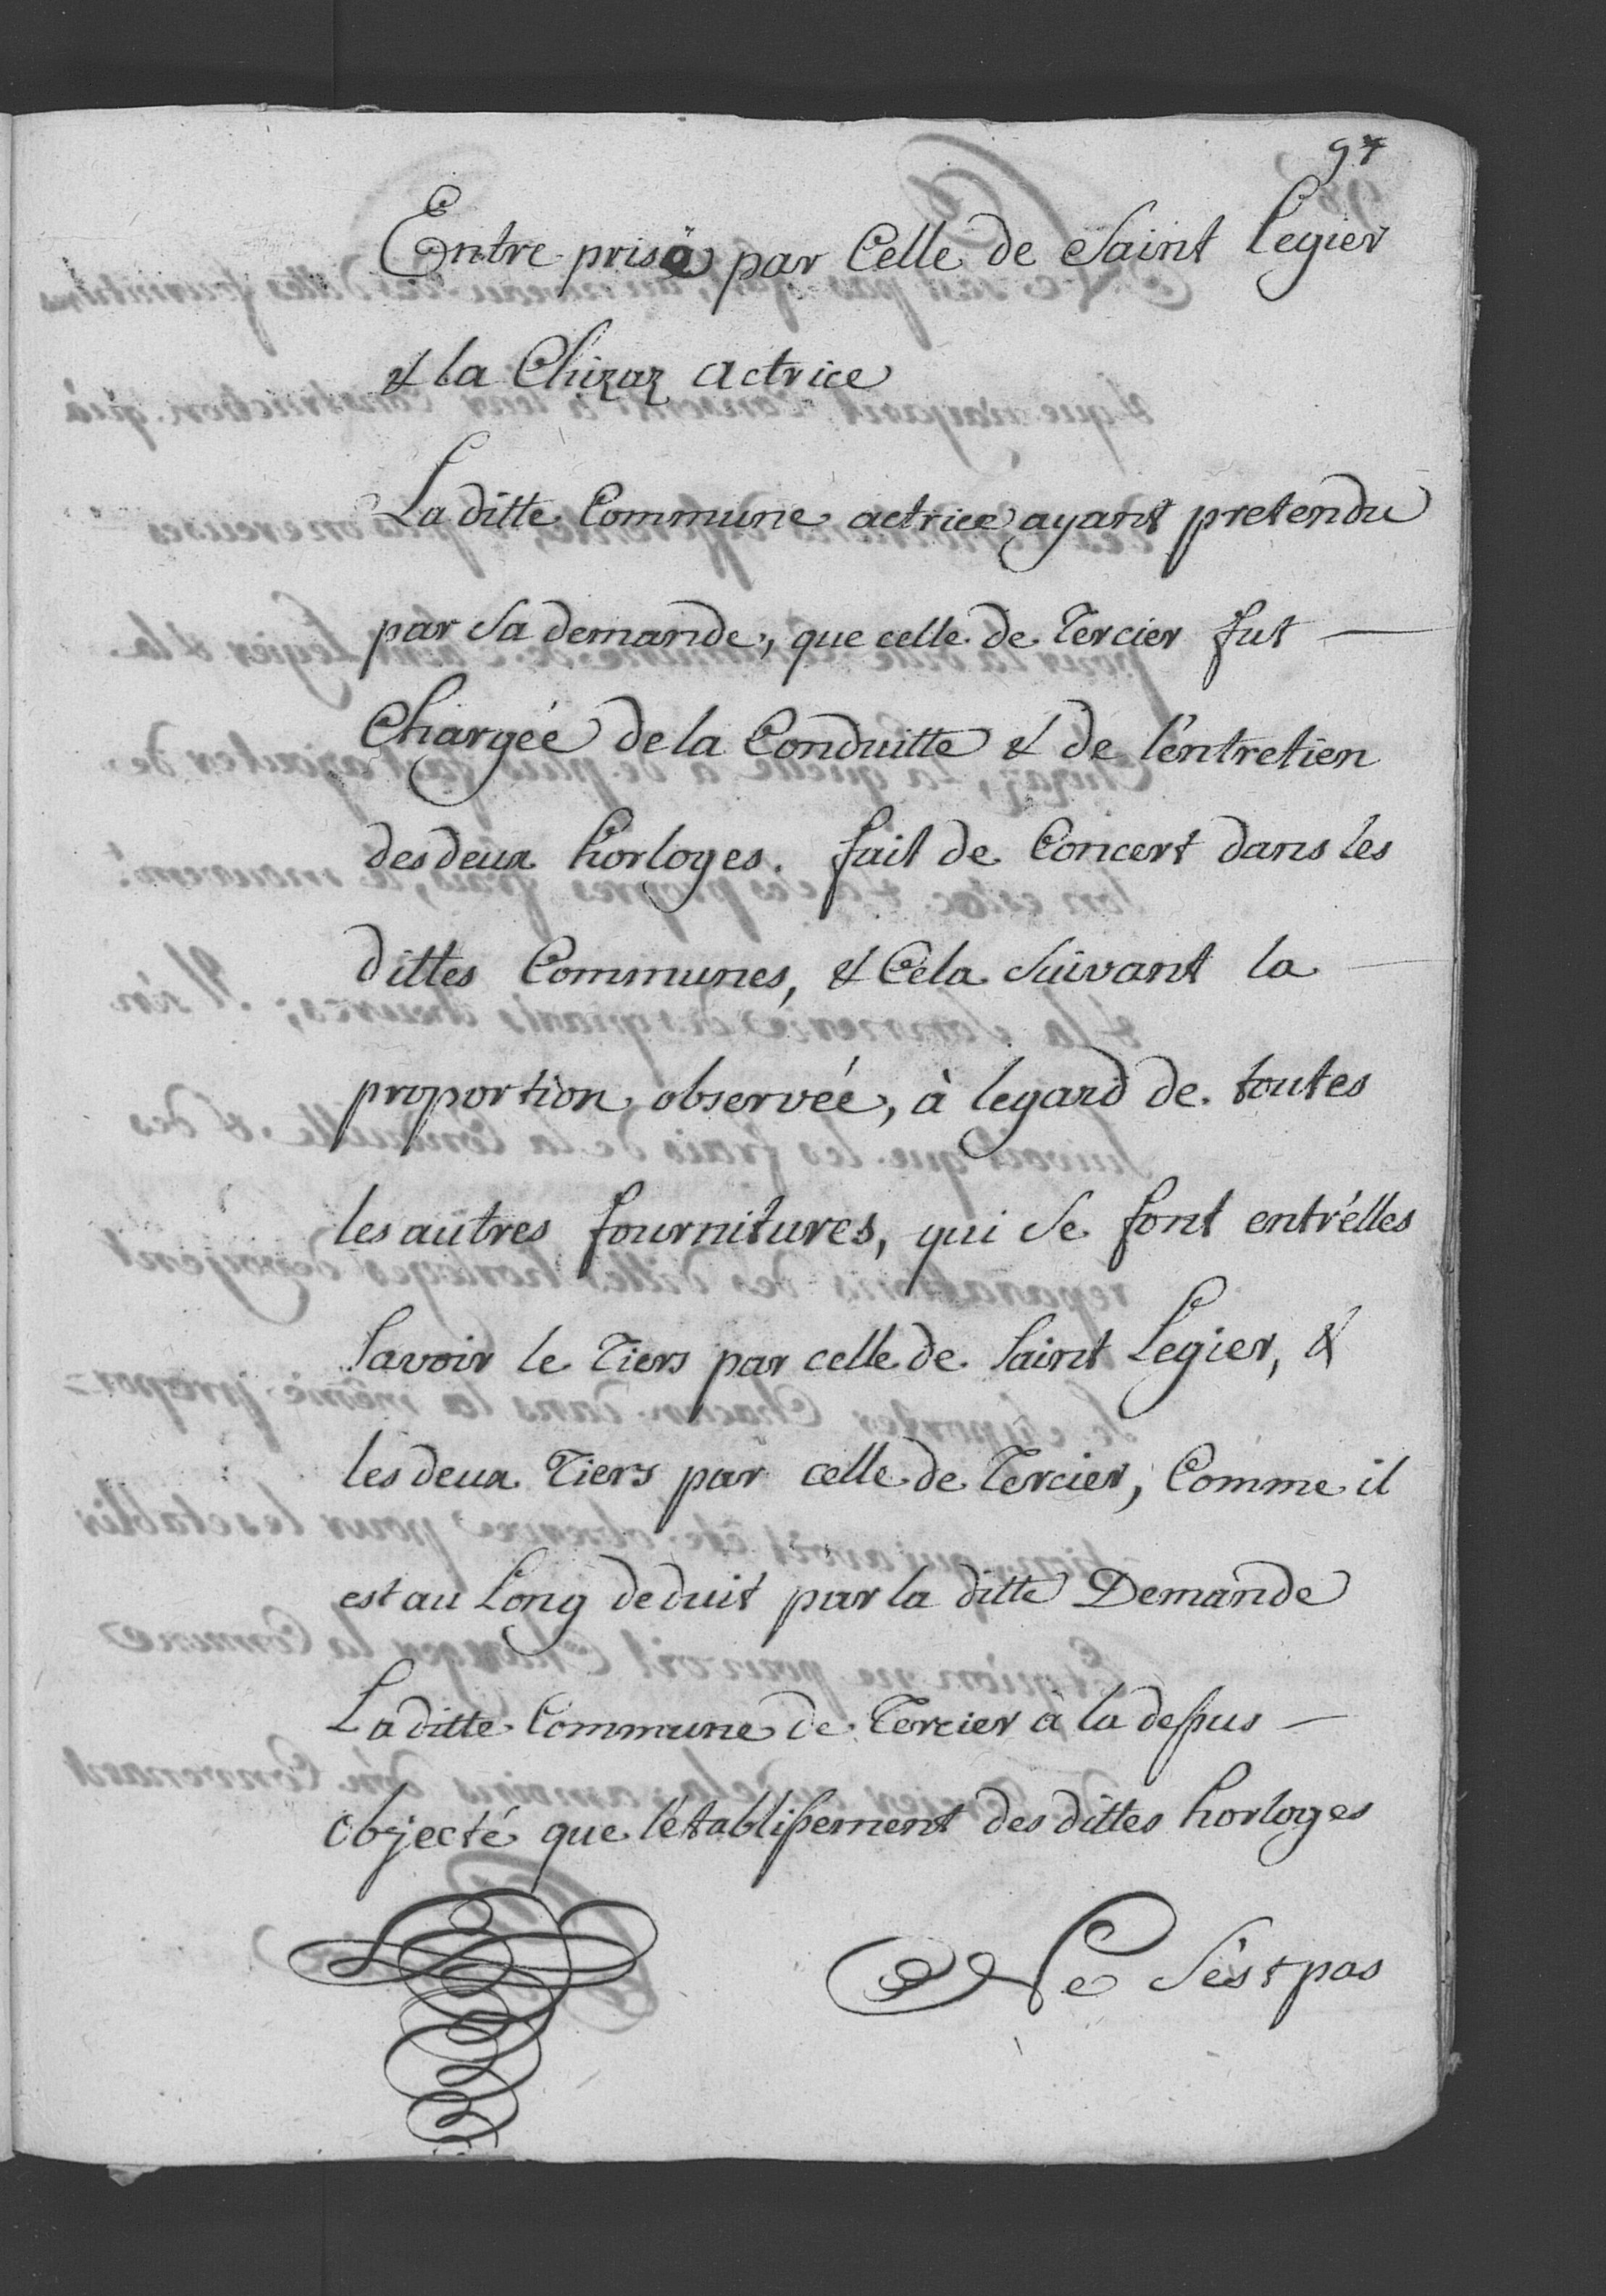 97
Entre prise par Celle de Saint Legier
& la Chizaz actrice
La ditte Commune actrice ayant pretendu
par Sa demande, que celle de Tercier fut
Chargée de la Conduitte & de l'éntretien
des deux horloges. fait de Concert dans les
dittes Communes, & Cela Suivant la
proportion observée, à legard de toutes
les autres fournitures, qui Se font entr'élles
Savoir le Tiers par celle de Saint Legier, &
les deux Tiers par celle de Tercier, Comme il
est au Long deduit par la ditte Demande
La ditte Commune de Tercier à la dessus
objecté que l'établissement des dittes horloges
Ne S'ést pas